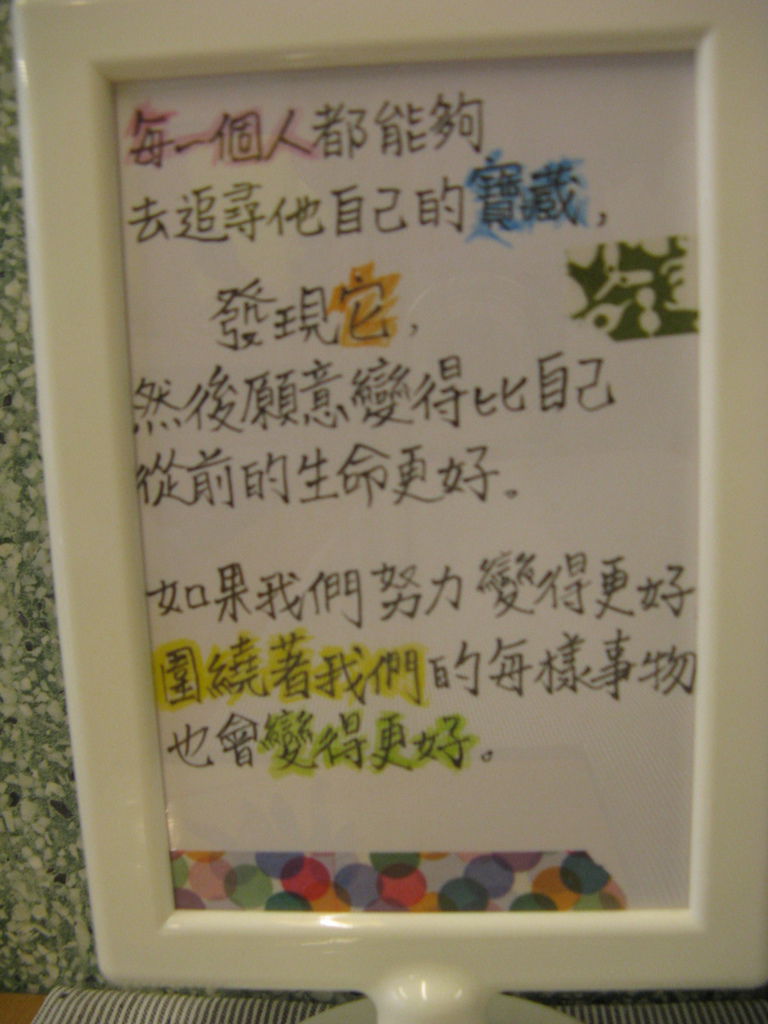 每一個人都能夠
去追尋他自己的寶藏,
發現它,
然後願意變得比自己
從前的生命更好。
如果我們努力變得更好
圍繞著我們的每樣事物
也會變得更好。